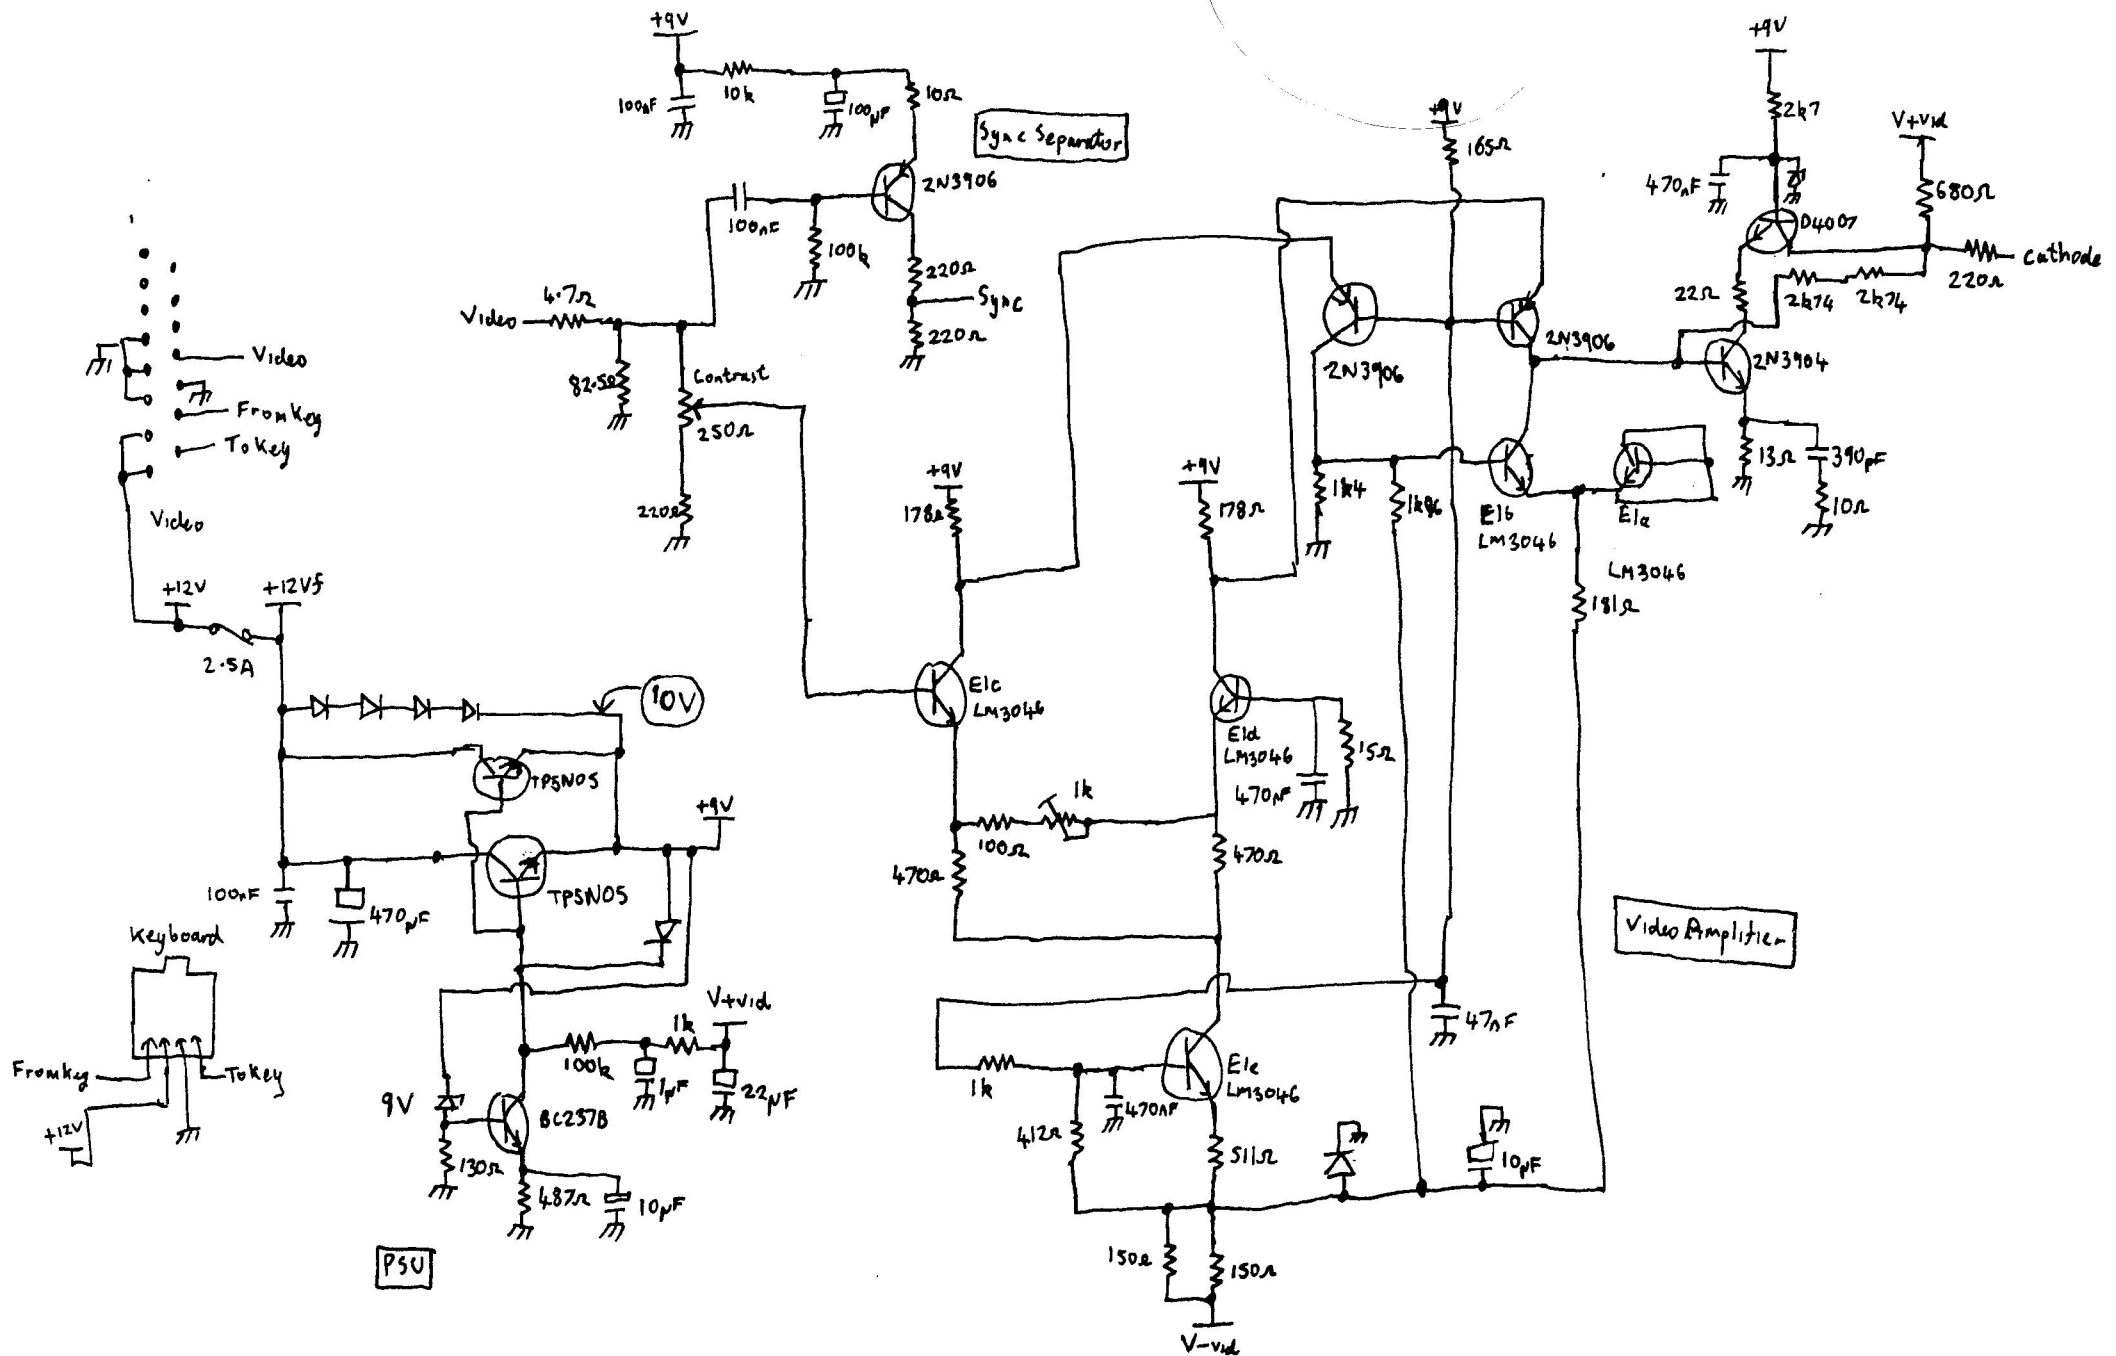 +9V
100nF
10k
100µF
10Ω
Sync Separator
2N3906
100nF
100k
220Ω
Sync
220Ω
Video
4.7Ω
82.5Ω
Contrast
250Ω
220Ω
Video
FromKey
ToKey
Video
+12V
+12Vf
2.5A
10V
TP5N05
TP5N05
+9V
100nF
470µF
Keyboard
Fromkey
ToKey
+12V
9V
BC237B
130Ω
487Ω
10µF
100k
1µF
1k
V+vid
22µF
PSU
+9V
178Ω
E1c
LM3046
+9V
178Ω
E1d
LM3046
470nF
15Ω
100Ω
1k
470Ω
470Ω
1k
470nF
412Ω
E1e
LM3046
511Ω
150Ω
150Ω
V-vid
10µF
47nF
Video Amplifier
+9V
165Ω
2N3906
2N3906
1k4
E1b
LM3046
E1a
LM3046
181Ω
+9V
2k7
470nF
D4007
V+vid
680Ω
Cathode
220Ω
22Ω
2k74
2k74
2N3904
13Ω
390pF
10Ω